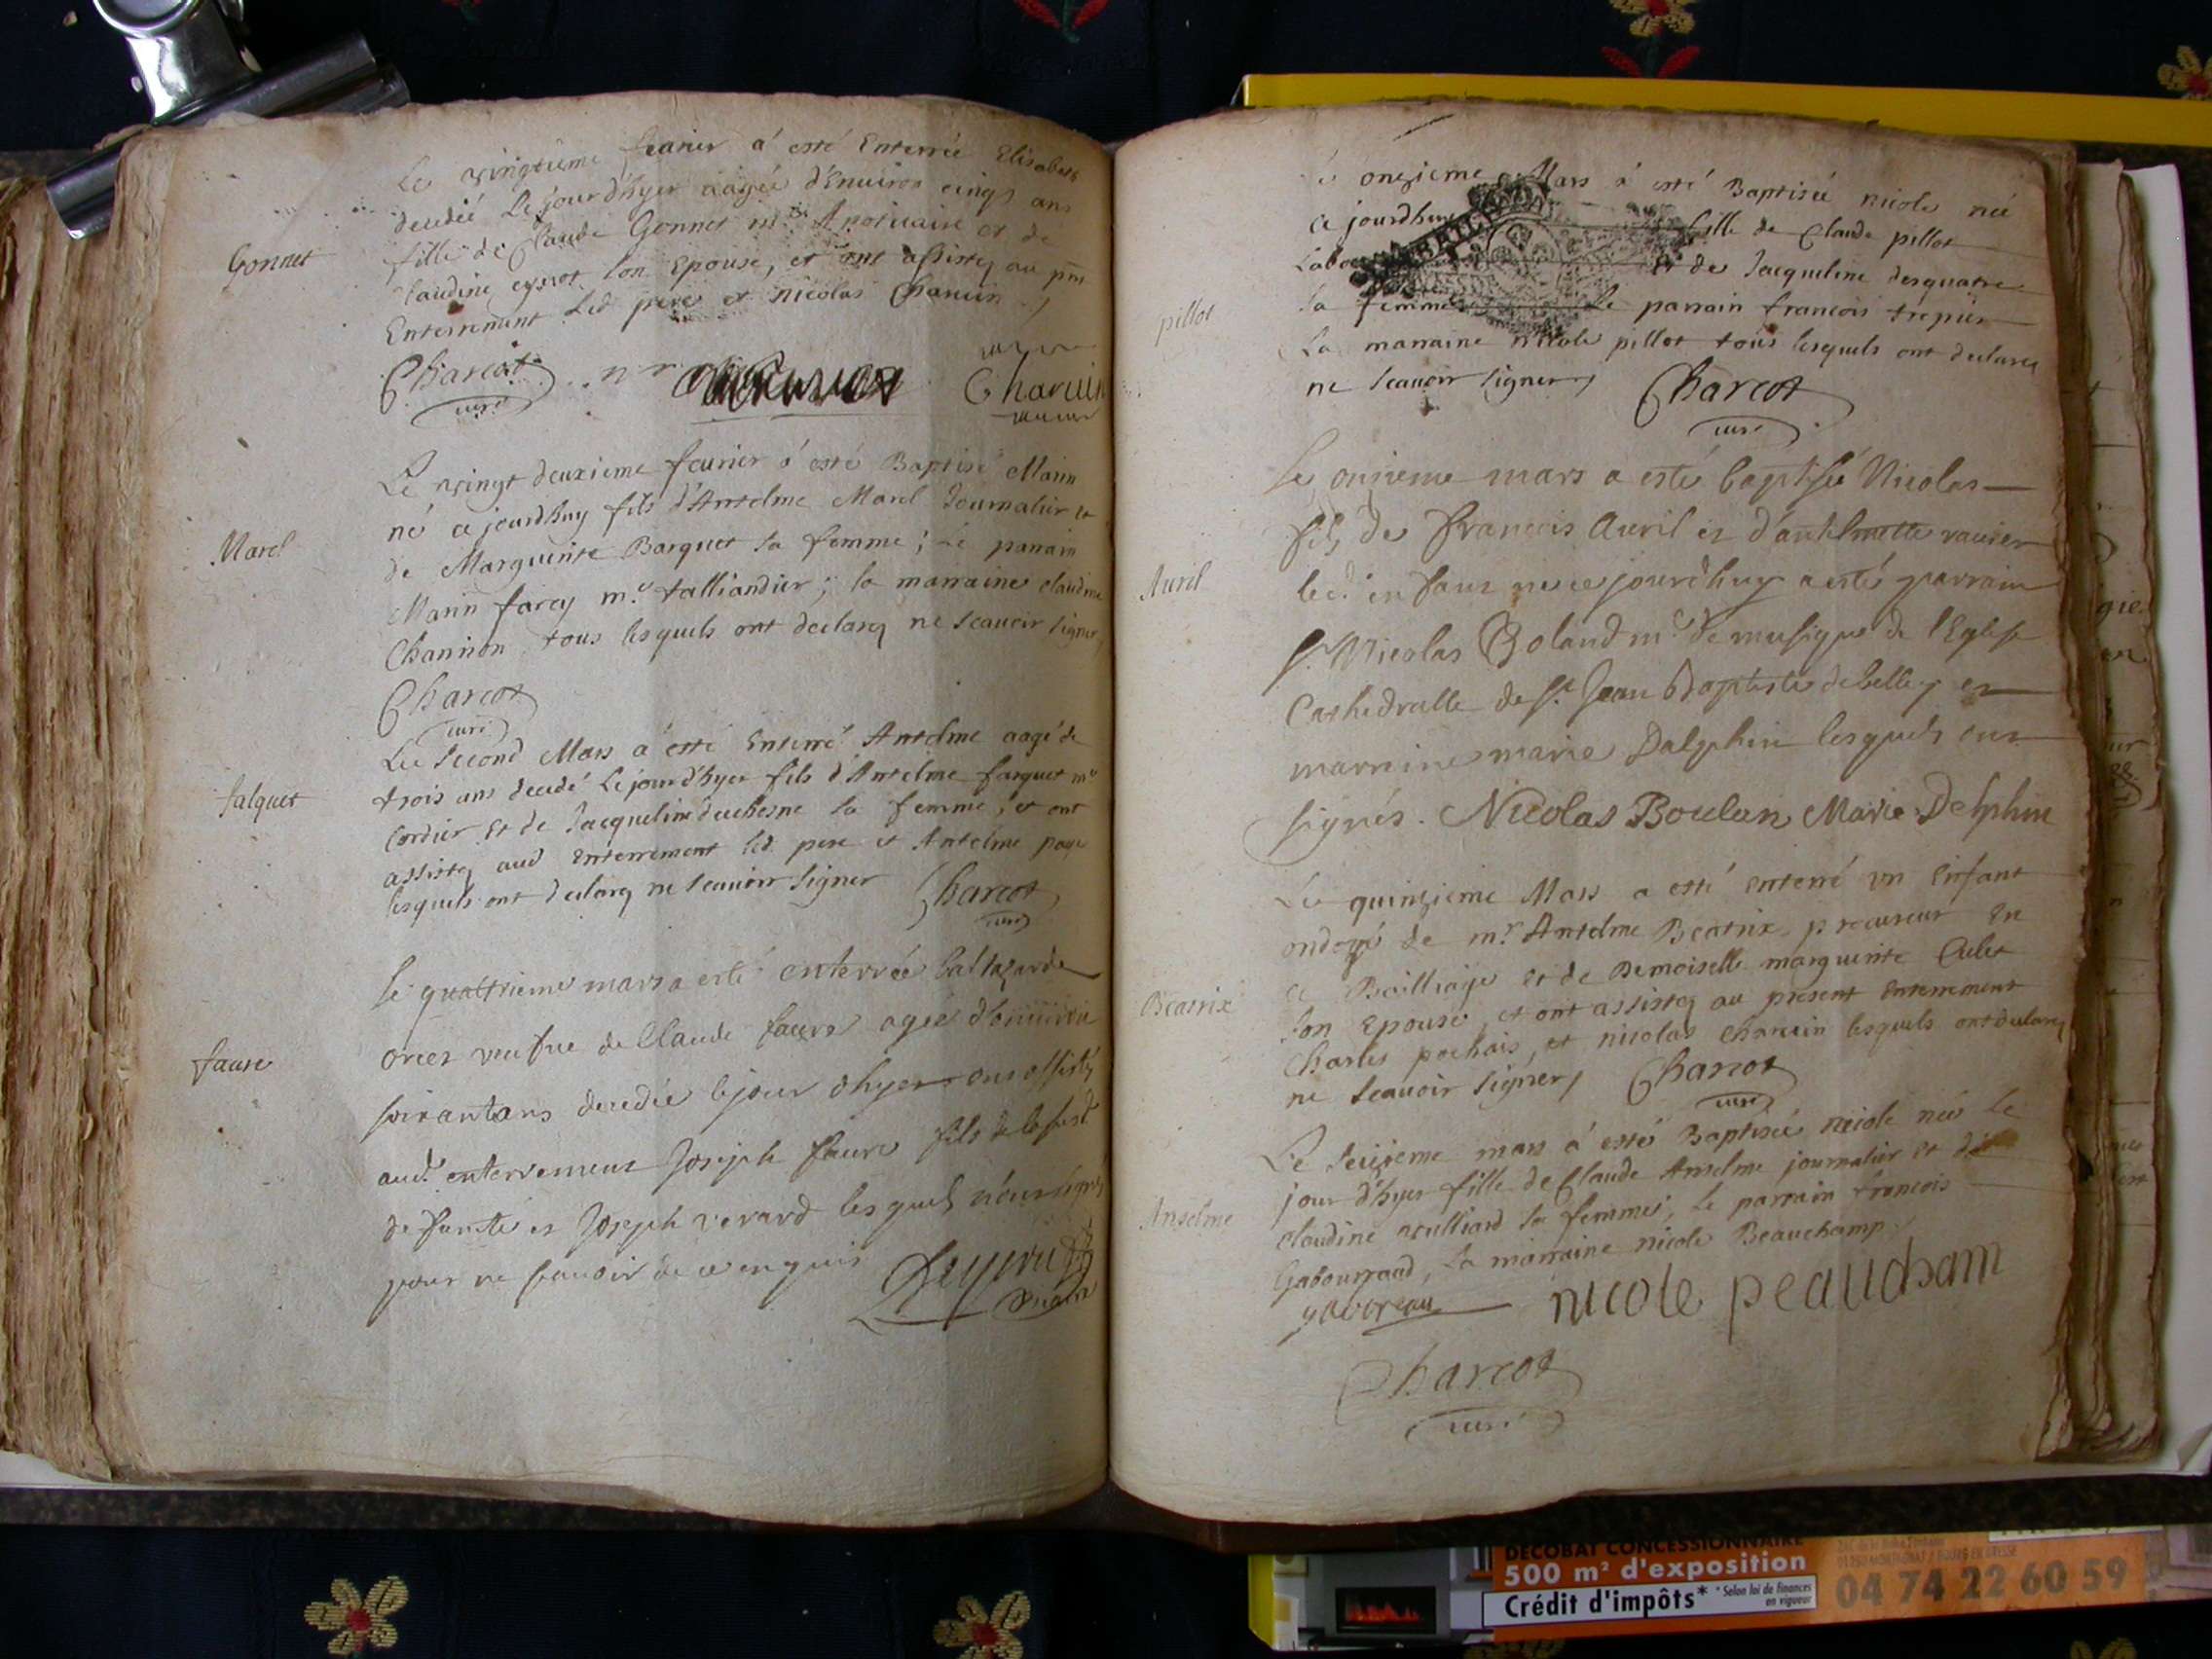 Le vingtieme feurier á esté Enterrée Elisabeth
decedée Le jour d'hyer aagée d'Enuiron cinqs ans
Gonnet
fille de Claude Gonnet mre Apoticaire et de
Claudine son Epouse, et ont assistez au pnt
Enterrement Led. pere et nicolas Charuin
Charcot Charuin
curé
Le vingt deuxieme feurier á esté Baptisé Marin
né ce jourdhuy fils d'Antelme Marel Journalier et
Marel
de Marguerite Barquet sa femme; Le parrain
Marin farcy me talliandier; la marraine claudine
Channon tous lesquels ont declarez ne scauoir signer
Charcot
curé
Le second Mars á esté Enterré Antelme aagé de
falquet
trois ans decedé Le jour d'hyer fils d'Antelme farquet me
Cordier Et de Jacqueline duchesne sa femme, et ont
assistez aud Enterrement led. pere et Antelme page
lesquels ont declarez ne scauoir signer Charcot
curé
le quattrieme mars a esté enterrée baltazarde
orcet veufue de Claude faure agée d'enuiron
faure
soixant ans decedée le jour d'hyer ont assistés
aud. enterrement Joseph faure fils de lad.
defunte et Joseph verard lesquels n'ont signés
pour ne scauoir de ce enquis
onzieme Mars á esté Baptisée nicole née
ce jourdhuy fille de Claude pillot
et de Jacqueline desquatre
pillot
sa femme Le parrain francois trepier
La marraine nicole pillot tous lesquels ont declarez
ne scauoir signer Charcot
curé
le onzieme mars a esté baptisé Nicolas
fils de francois Auril et d'anthelmette rauier
Auril
led. enfant né ce jourd'huy a esté parrain
sr Nicolas Boland me de musique de l'Eglise
Cathedralle de st Jean Baptiste de belley et
marraine marie Dalphin lesquels ont
signés. Nicolas Boulan Marie Delphin
Le quinzieme Mars a esté enterré vn Enfant
ondoyé de mr Antelme Beatrix procureur En
Beatrix
ce Bailliage et de Demoiselle marguerite Cullet
son Epouse, et ont assistez au present Enterrement
Charles pochais, et nicolas charuin lesquels ont declarez
ne scauoir signer Charcot
curé
Le seizieme mars á esté Baptisée nicole née Le
jour d'hyer fille de Claude Anselme journalier et de
Anselme
claudine vulliard sa femme; Le parrain francois
Gabourraud, La marraine nicole Beauchamp
gaboreau nicole peaucham
Charcot
curé
DECOBAT CONCESSIONNAIRE
500 m² d'exposition
Crédit d'impôts* * Selon loi de finances
en vigueur
04 74 22 60 59